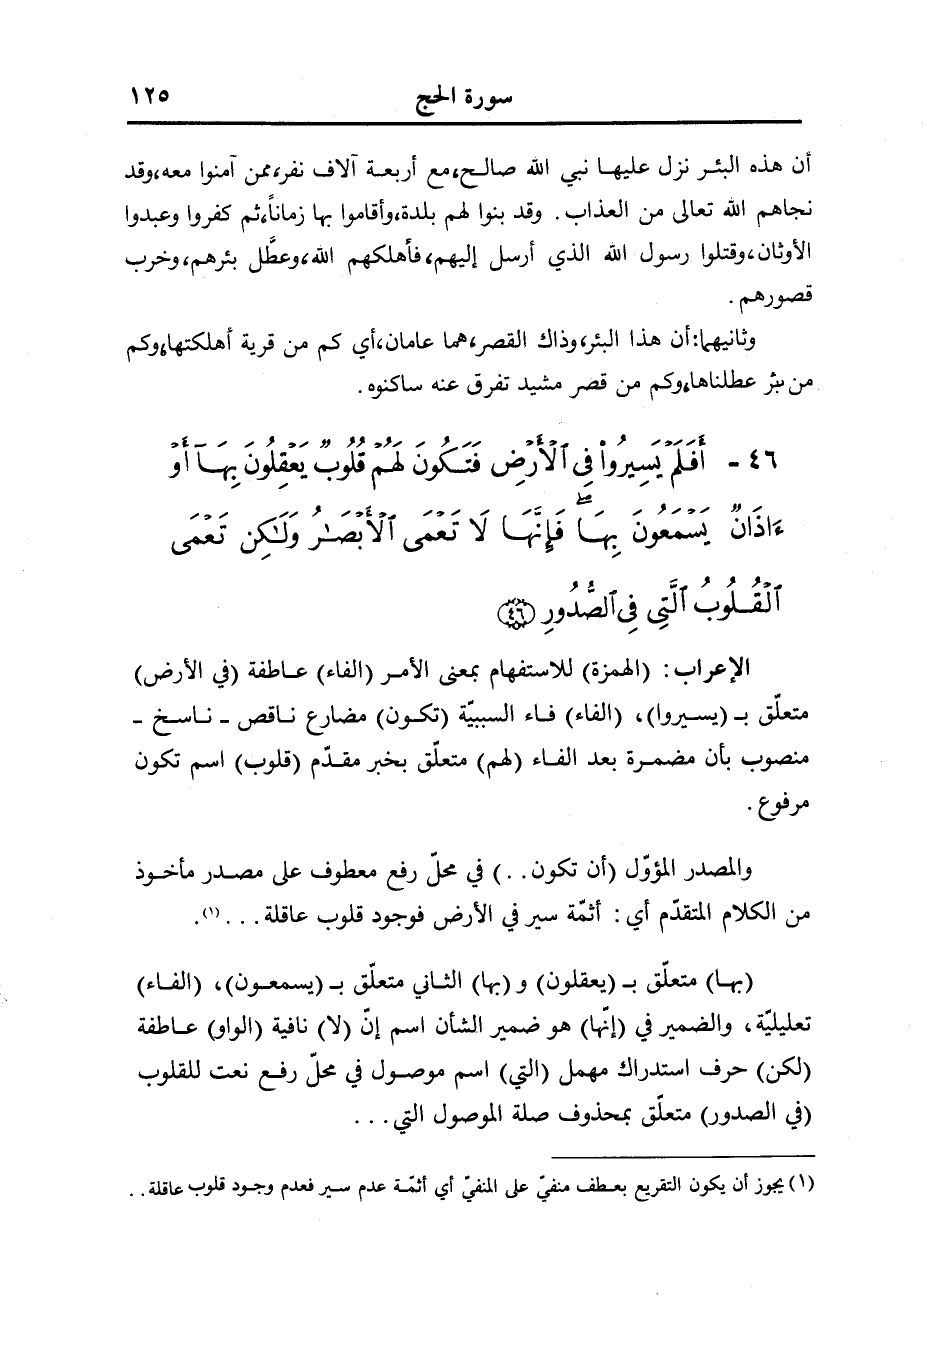 سورة الحج ١٢٥
أن هذه البئر نزل عليها نبي الله صالح، مع أربعة آلاف نفر، ممن آمنوا معه، وقد
نجاهم الله تعالى من العذاب. وقد بنوا لهم بلدة، وأقاموا بها زماناً، ثم كفروا وعبدوا
الأوثان، وقتلوا رسول الله الذي أرسل إليهم، فأهلكهم الله، وعطَّل بئرهم، وخرب
قصورهم.
وثانيهما: أن هذا البئر، وذاك القصر، هما عامان، أي كم من قرية أهلكتها، وكم
من بئر عطلناها، وكم من قصر مشيد تفرق عنه ساكنوه.
٤٦ - أَفَلَمْ يَسِيرُواْ فِي ٱلْأَرْضِ فَتَكُونَ لَهُمْ قُلُوبٌ يَعْقِلُونَ بِهَآ أَوْ
ءَاذَانٌ يَسْمَعُونَ بِهَا ۖ فَإِنَّهَا لَا تَعْمَى ٱلْأَبْصَـٰرُ وَلَـٰكِن تَعْمَى
ٱلْقُلُوبُ ٱلَّتِي فِي ٱلصُّدُورِ ﴿٤٦﴾
الإعراب: (الهمزة) للاستفهام بمعنى الأمر (الفاء) عاطفة (في الأرض)
متعلّق بـ (يسيروا)، (الفاء) فاء السببيّة (تكون) مضارع ناقص - ناسخ -
منصوب بأن مضمرة بعد الفاء (لهم) متعلّق بخبر مقدّم (قلوب) اسم تكون
مرفوع.
والمصدر المؤوّل (أن تكون..) في محلّ رفع معطوف على مصدر مأخوذ
من الكلام المتقدّم أي: أثمّة سير في الأرض فوجود قلوب عاقلة...(١).
(بها) متعلّق بـ (يعقلون) و (بها) الثاني متعلّق بـ (يسمعون)، (الفاء)
تعليليّة، والضمير في (إنّها) هو ضمير الشأن اسم إنّ (لا) نافية (الواو) عاطفة
(لكن) حرف استدراك مهمل (التي) اسم موصول في محلّ رفع نعت للقلوب
(في الصدور) متعلّق بمحذوف صلة الموصول التي...
(١) يجوز أن يكون التقريع بعطف منفيّ على المنفيّ أي أثمّة عدم سير فعدم وجود قلوب عاقلة..